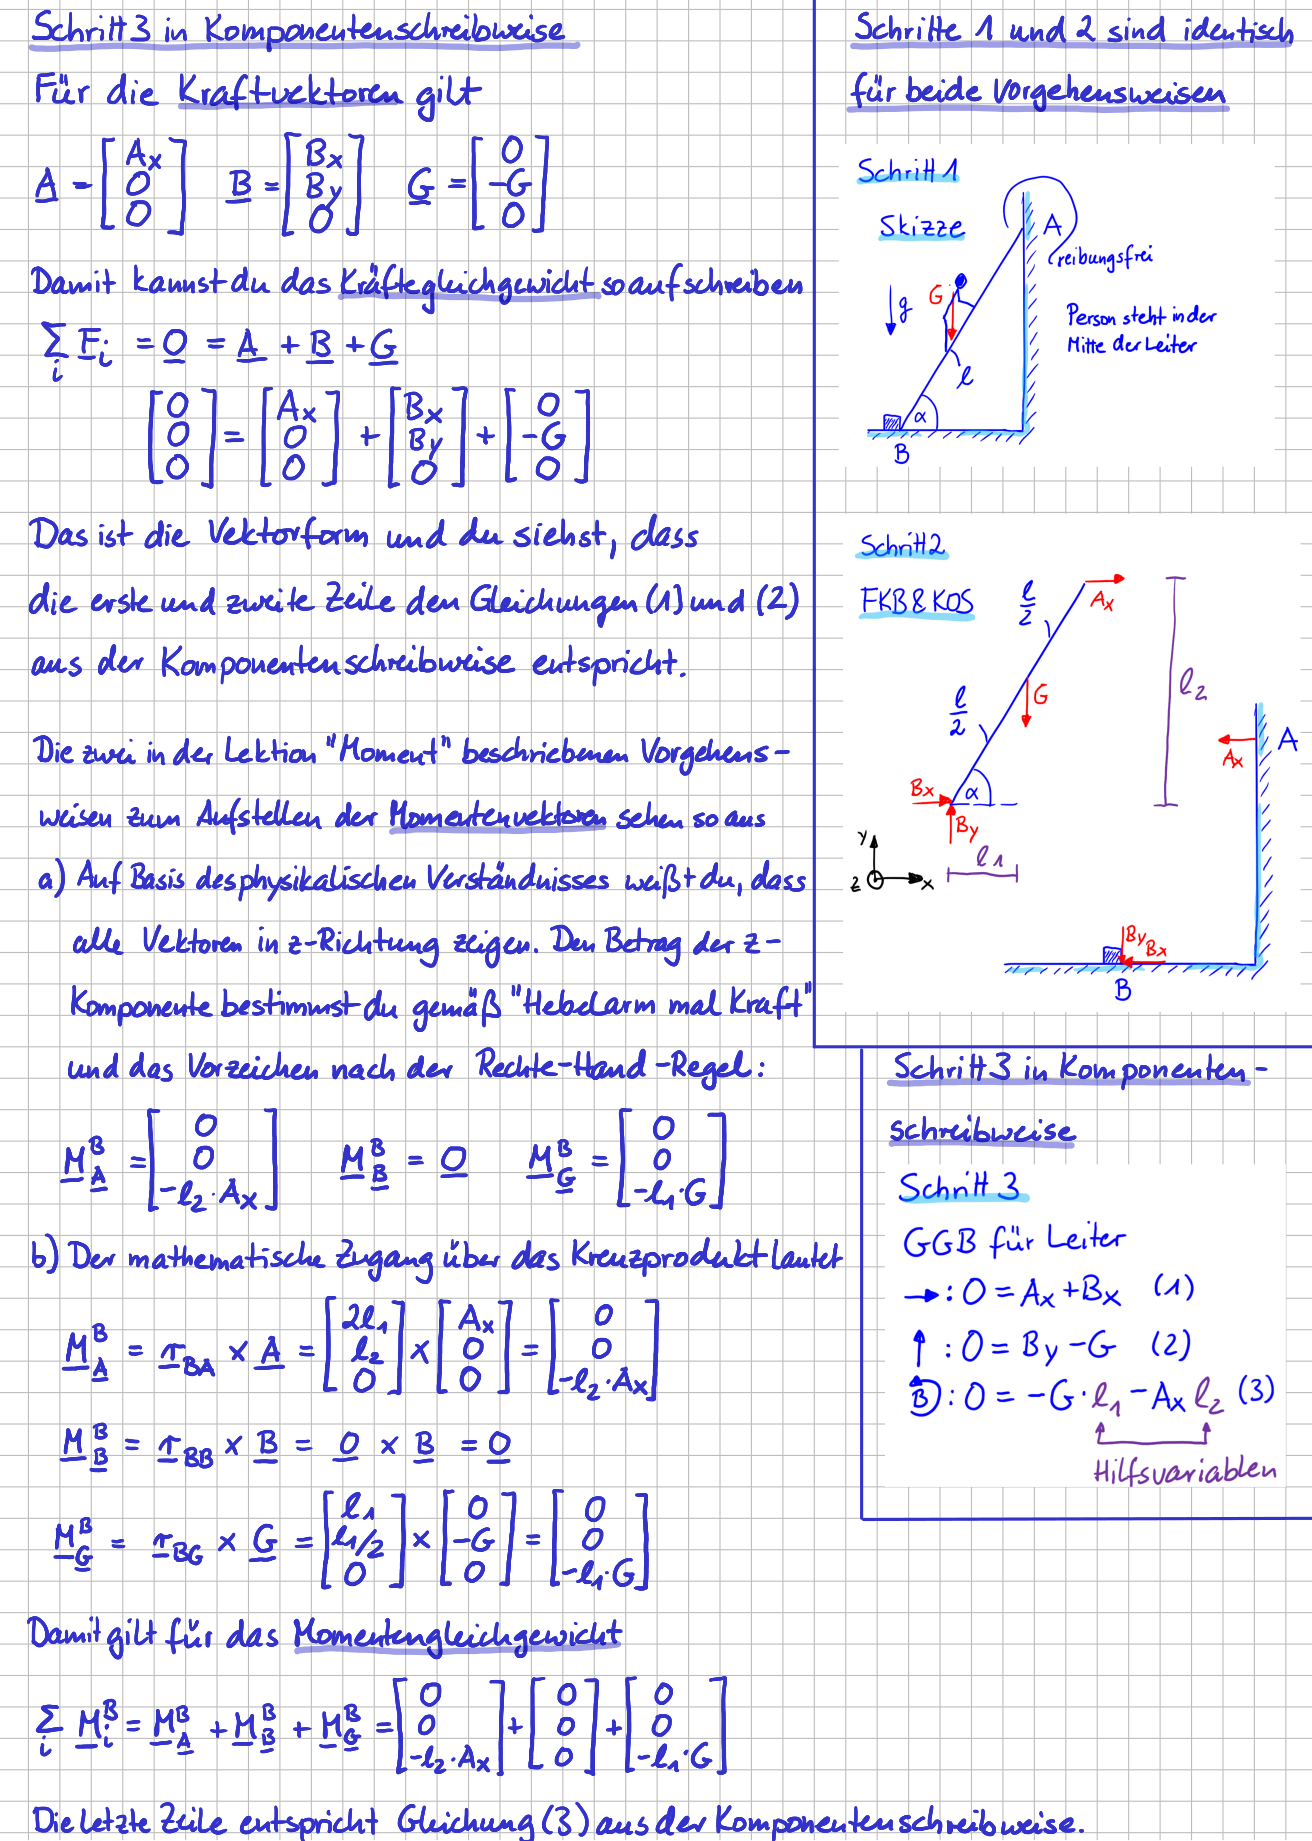 Schritt 3 in Komponentenschreibweise
Für die Kraftvektoren gilt
A = [Ax 0 0] B = [Bx By 0] G = [0 -G 0]
Damit kannst du das Kräftegleichgewicht so aufschreiben
∑i Fi = 0 = A + B + G
[0 0 0] = [Ax 0 0] + [Bx By 0] + [0 -G 0]
Das ist die Vektorform und du siehst, dass
die erste und zweite Zeile den Gleichungen (1) und (2)
aus der Komponentenschreibweise entspricht.
Die zwei in der Lektion "Moment" beschriebenen Vorgehens-
weisen zum Aufstellen der Momentenvektoren sehen so aus
a) Auf Basis des physikalischen Verständnisses weißt du, dass
alle Vektoren in z-Richtung zeigen. Den Betrag der z-
Komponente bestimmst du gemäß "Hebelarm mal Kraft"
und das Vorzeichen nach der Rechte-Hand-Regel:
M^B_A = [0 0 -l2·Ax] M^B_B = 0 M^B_G = [0 0 -l1·G]
b) Der mathematische Zugang über das Kreuzprodukt lautet
M^B_A = r_BA × A = [2l1 l2 0] × [Ax 0 0] = [0 0 -l2·Ax]
M^B_B = r_BB × B = 0 × B = 0
M^B_G = r_BG × G = [l1 l1/2 0] × [0 -G 0] = [0 0 -l1·G]
Damit gilt für das Momentengleichgewicht
∑i M^B_i = M^B_A + M^B_B + M^B_G = [0 0 -l2·Ax] + [0 0 0] + [0 0 -l1·G]
Die letzte Zeile entspricht Gleichung (3) aus der Komponentenschreibweise.
Schritte 1 und 2 sind identisch
für beide Vorgehensweisen
Schritt 1
Skizze
A
reibungsfrei
g
G
Person steht in der
Mitte der Leiter
l
α
B
Schritt 2
FKB & KOS
l/2
Ax
l2
G
l/2
A
Ax
Bx
α
By
l1
y
z
x
By
Bx
B
Schritt 3 in Komponenten-
schreibweise
Schritt 3
GGB für Leiter
→: 0 = Ax + Bx (1)
↑: 0 = By - G (2)
B: 0 = -G·l1 - Ax l2 (3)
Hilfsvariablen